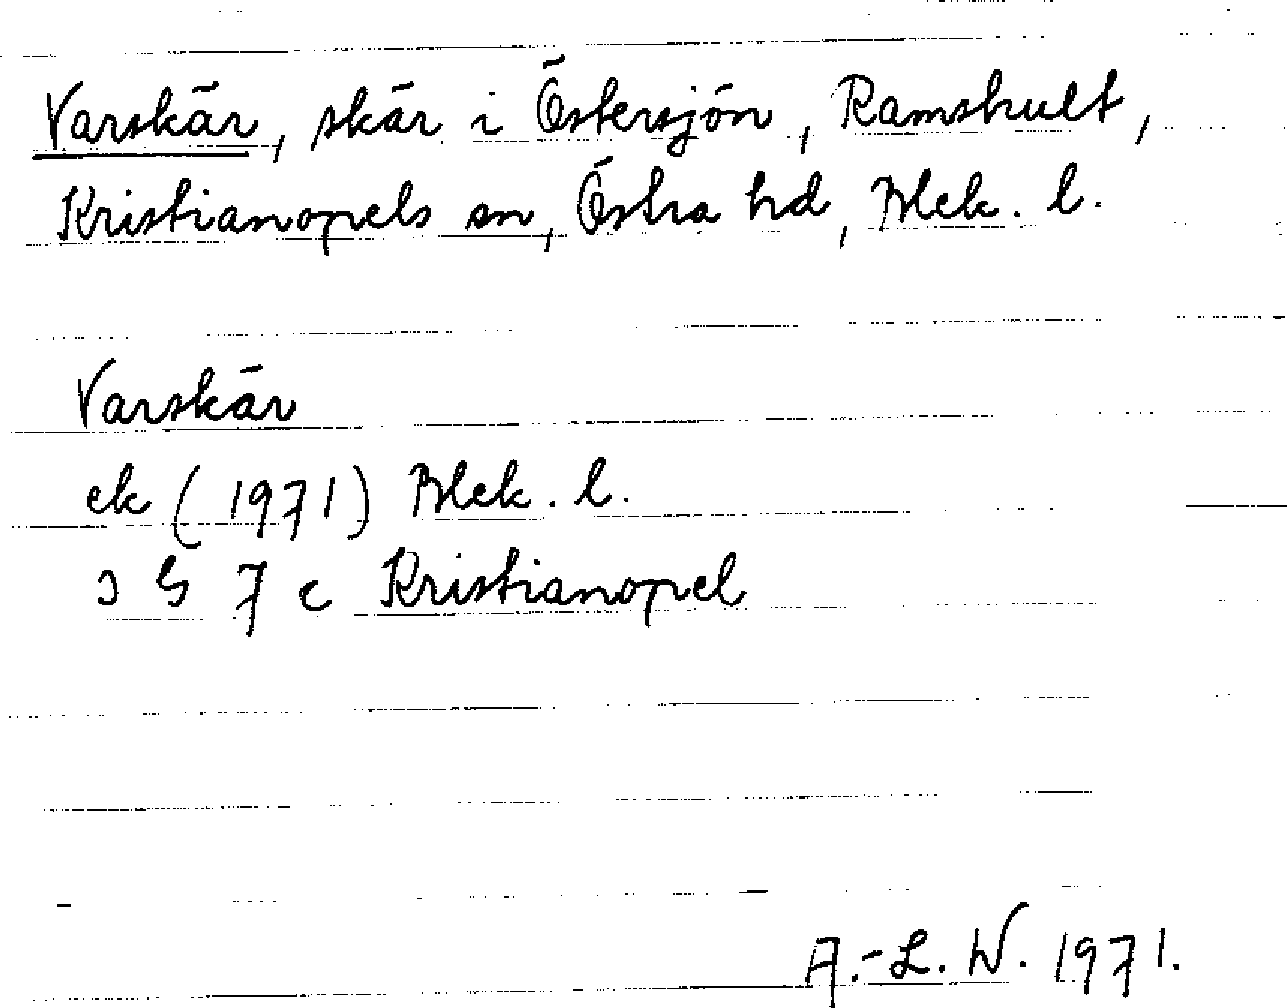 Varskär, skär i Östersjön, Ramshult,
Kristianopels sn, Östra hd, Blek. l.
Varskär
ek (1971) Blek. l.
3 G 7 c Kristianopel
A.-L. W. 1971.